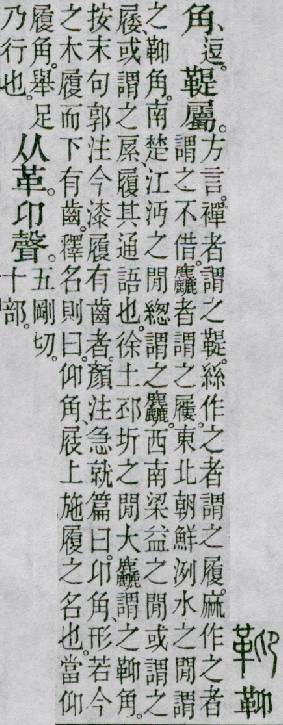 䩕䩕
角、逗。鞮屬。方言。襌者謂之鞮。絲作之者謂之履。麻作之者
謂之不借。麤者謂之屨。東北朝鮮洌水之閒謂
之䩕角。南楚江沔之閒緫謂之麤。西南梁益之閒或謂之
屨。或謂之㞜。履其通語也。徐土邳圻之閒大麤謂之䩕角。
按末句郭注今漆履有齒者。顏注急就篇曰。卬角、形若今
之木履而下有齒。釋名則曰。仰角、屐上施履之名也。當仰
履角。舉足
乃行也。从革。卬聲。五剛切。
十部。